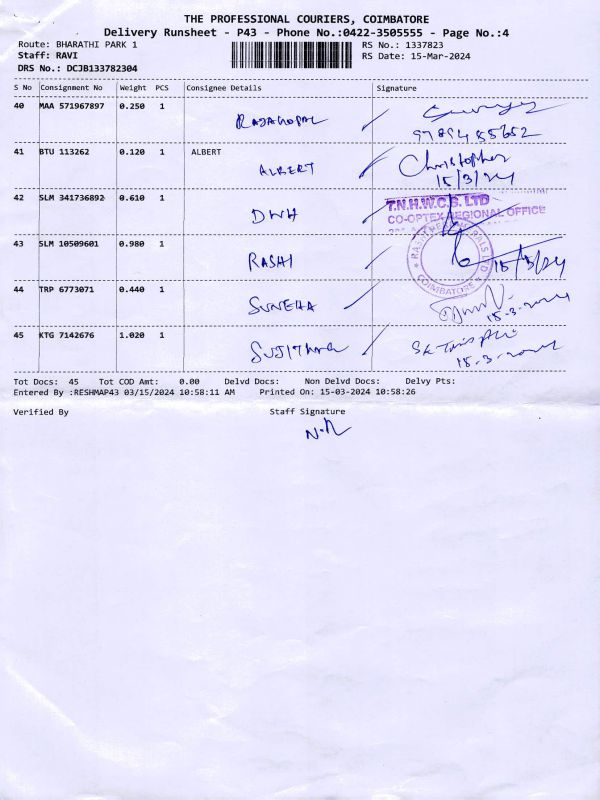 THE PROFESSIONAL COURIERS, COIMBATORE
Delivery Runsheet - P43 - Phone No.:0422-3505555 - Page No.:4
Route: BHARATHI PARK 1 RS No.: 1337823
Staff: RAVI RS Date: 15-Mar-2024
DRS No.: DCJB133782304
S No Consignment No Weight PCS Consignee Details Signature
40 MAA 571967897 0.250 1
RAJAGOPAL
41 BTU 113262 0.120 1 ALBERT
ALBERT Christopher
15/3/24
42 SLM 341736892 0.610 1 T.N.H.W.C.S. LTD
DWH CO-OPTEX REGIONAL OFFICE
43 SLM 10509601 0.980 1
RASHI 15/3/24
COIMBATORE
44 TRP 6773071 0.440 1
SUNEHA 15-3-2024
45 KTG 7142676 1.020 1
SUJITHRA
15-3-2024
Tot Docs: 45 Tot COD Amt: 0.00 Delvd Docs: Non Delvd Docs: Delvy Pts:
Entered By :RESHMAP43 03/15/2024 10:58:11 AM Printed On: 15-03-2024 10:58:26
Verified By Staff Signature